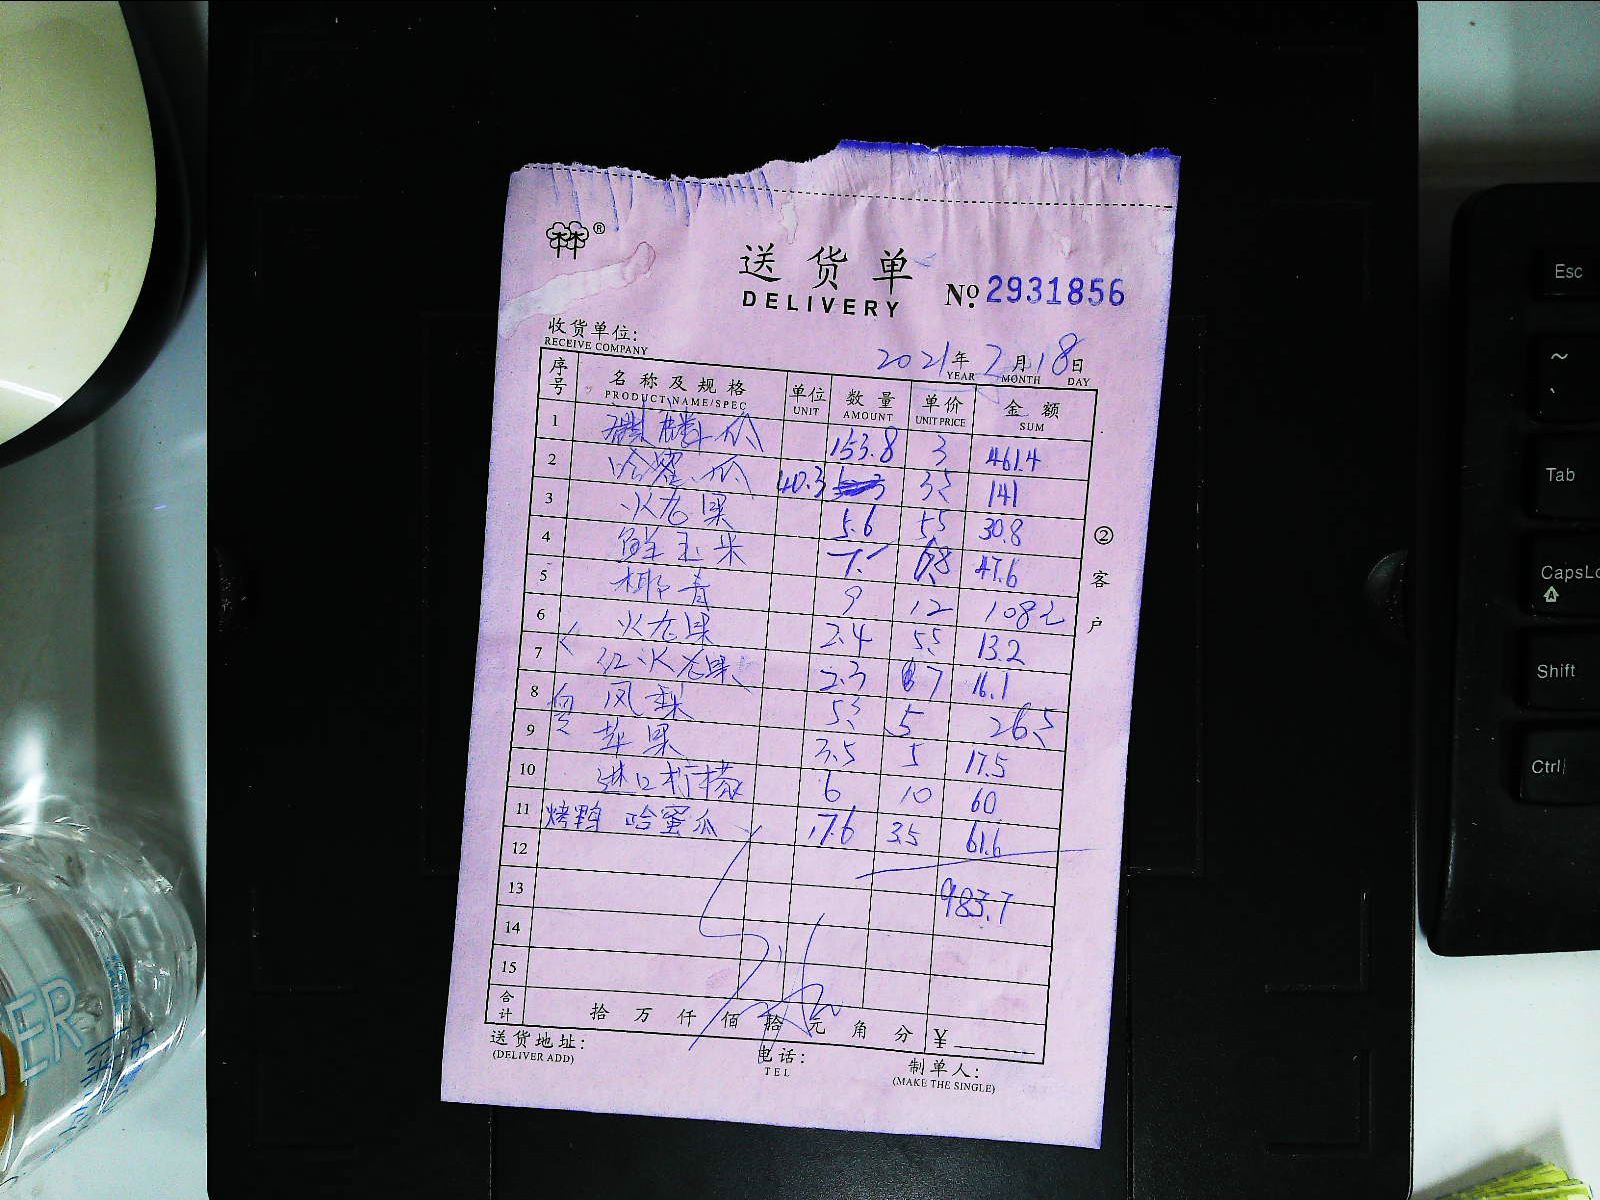 林®
送货单
DELIVERY № 2931856
收货单位:
RECEIVE COMPANY
2021年7月18日
YEAR MONTH DAY
序号 名称及规格 单位 数量 单价 金额
PRODUCT NAME/SPEC UNIT AMOUNT UNIT PRICE SUM
1 麒麟瓜 153.8 3 461.4
2 哈蜜瓜 40.3 35 141
3 火龙果 5.6 5.5 30.8
4 鲜玉米 7. 6.8 47.6
5 椰青 9 12 108元
6 火龙果 2.4 5.5 13.2
7 红火龙果 2.3 7 16.1
8 凤梨 53 5 265
9 苹果 3.5 5 17.5
10 进口柠檬 6 10 60
11 烤鸭 哈蜜瓜 17.6 3.5 61.6
12
13 983.7
14
15
合计 拾 万 仟 佰 拾 元 角 分 ¥
送货地址: 电话: 制单人:
(DELIVER ADD) TEL (MAKE THE SINGLE)
②客户
Esc
~
`
Tab
CapsLo
Shift
Ctrl
ER